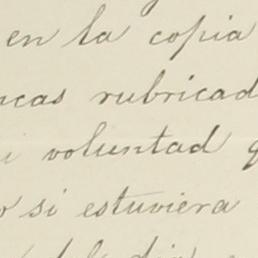 en la copia
ncas rubricad
voluntad q
o si estuviera